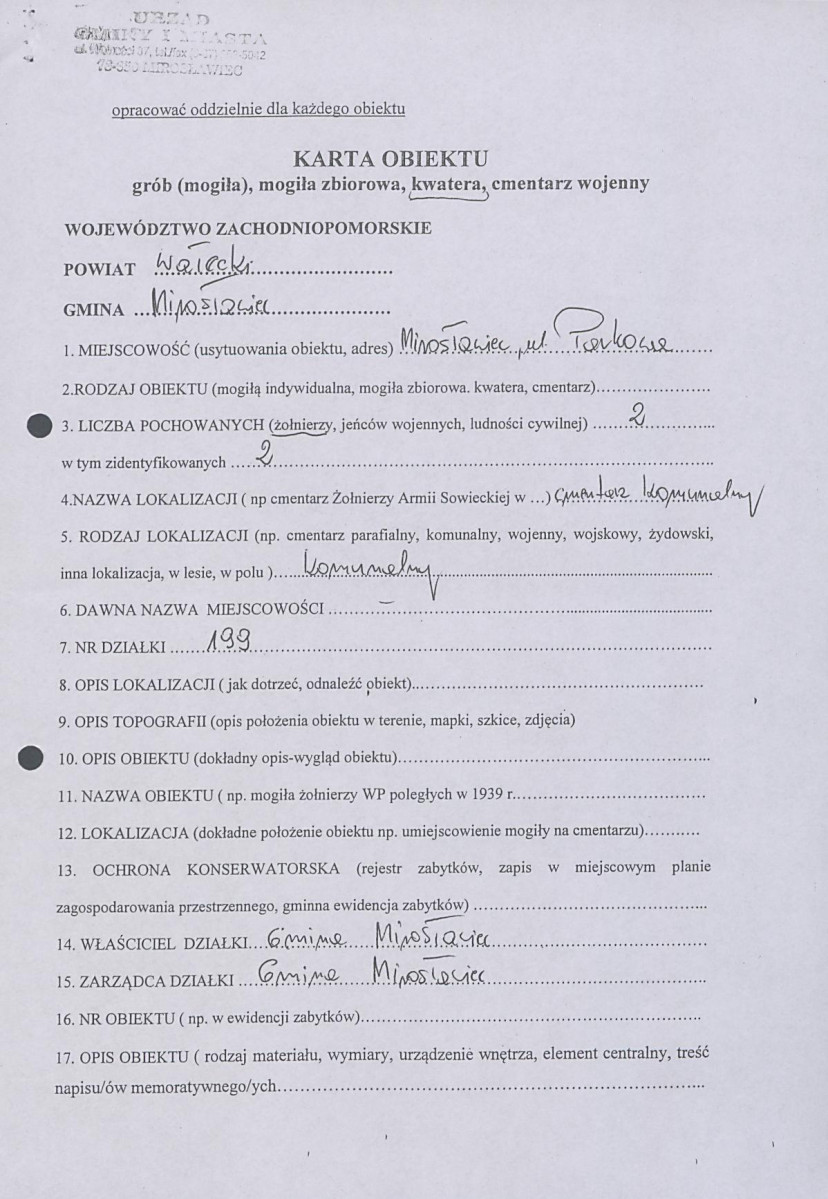 URZĄD
GMINY I MIASTA
ul. Wolności 37, tel/fax
78-650 MIROSŁAWIEC
opracować oddzielnie dla każdego obiektu
KARTA OBIEKTU
grób (mogiła), mogiła zbiorowa, kwatera, cmentarz wojenny
WOJEWÓDZTWO ZACHODNIOPOMORSKIE
POWIAT Wałecki
GMINA Mirosławiec
1. MIEJSCOWOŚĆ (usytuowania obiektu, adres) Mirosławiec, ul. Parkowa
2.RODZAJ OBIEKTU (mogiłą indywidualna, mogiła zbiorowa. kwatera, cmentarz)
3. LICZBA POCHOWANYCH (żołnierzy, jeńców wojennych, ludności cywilnej) 2
w tym zidentyfikowanych 2
4.NAZWA LOKALIZACJI ( np cmentarz Żołnierzy Armii Sowieckiej w ...) Cmentarz Komunalny
5. RODZAJ LOKALIZACJI (np. cmentarz parafialny, komunalny, wojenny, wojskowy, żydowski,
inna lokalizacja, w lesie, w polu ) Komunalny
6. DAWNA NAZWA MIEJSCOWOŚCI –
7. NR DZIAŁKI 199
8. OPIS LOKALIZACJI ( jak dotrzeć, odnaleźć obiekt)
9. OPIS TOPOGRAFII (opis położenia obiektu w terenie, mapki, szkice, zdjęcia)
10. OPIS OBIEKTU (dokładny opis-wygląd obiektu)
11. NAZWA OBIEKTU ( np. mogiła żołnierzy WP poległych w 1939 r.
12. LOKALIZACJA (dokładne położenie obiektu np. umiejscowienie mogiły na cmentarzu)
13. OCHRONA KONSERWATORSKA (rejestr zabytków, zapis w miejscowym planie
zagospodarowania przestrzennego, gminna ewidencja zabytków)
14. WŁAŚCICIEL DZIAŁKI Gmina Mirosławiec
15. ZARZĄDCA DZIAŁKI Gmina Mirosławiec
16. NR OBIEKTU ( np. w ewidencji zabytków)
17. OPIS OBIEKTU ( rodzaj materiału, wymiary, urządzenie wnętrza, element centralny, treść
napisu/ów memoratywnego/ych